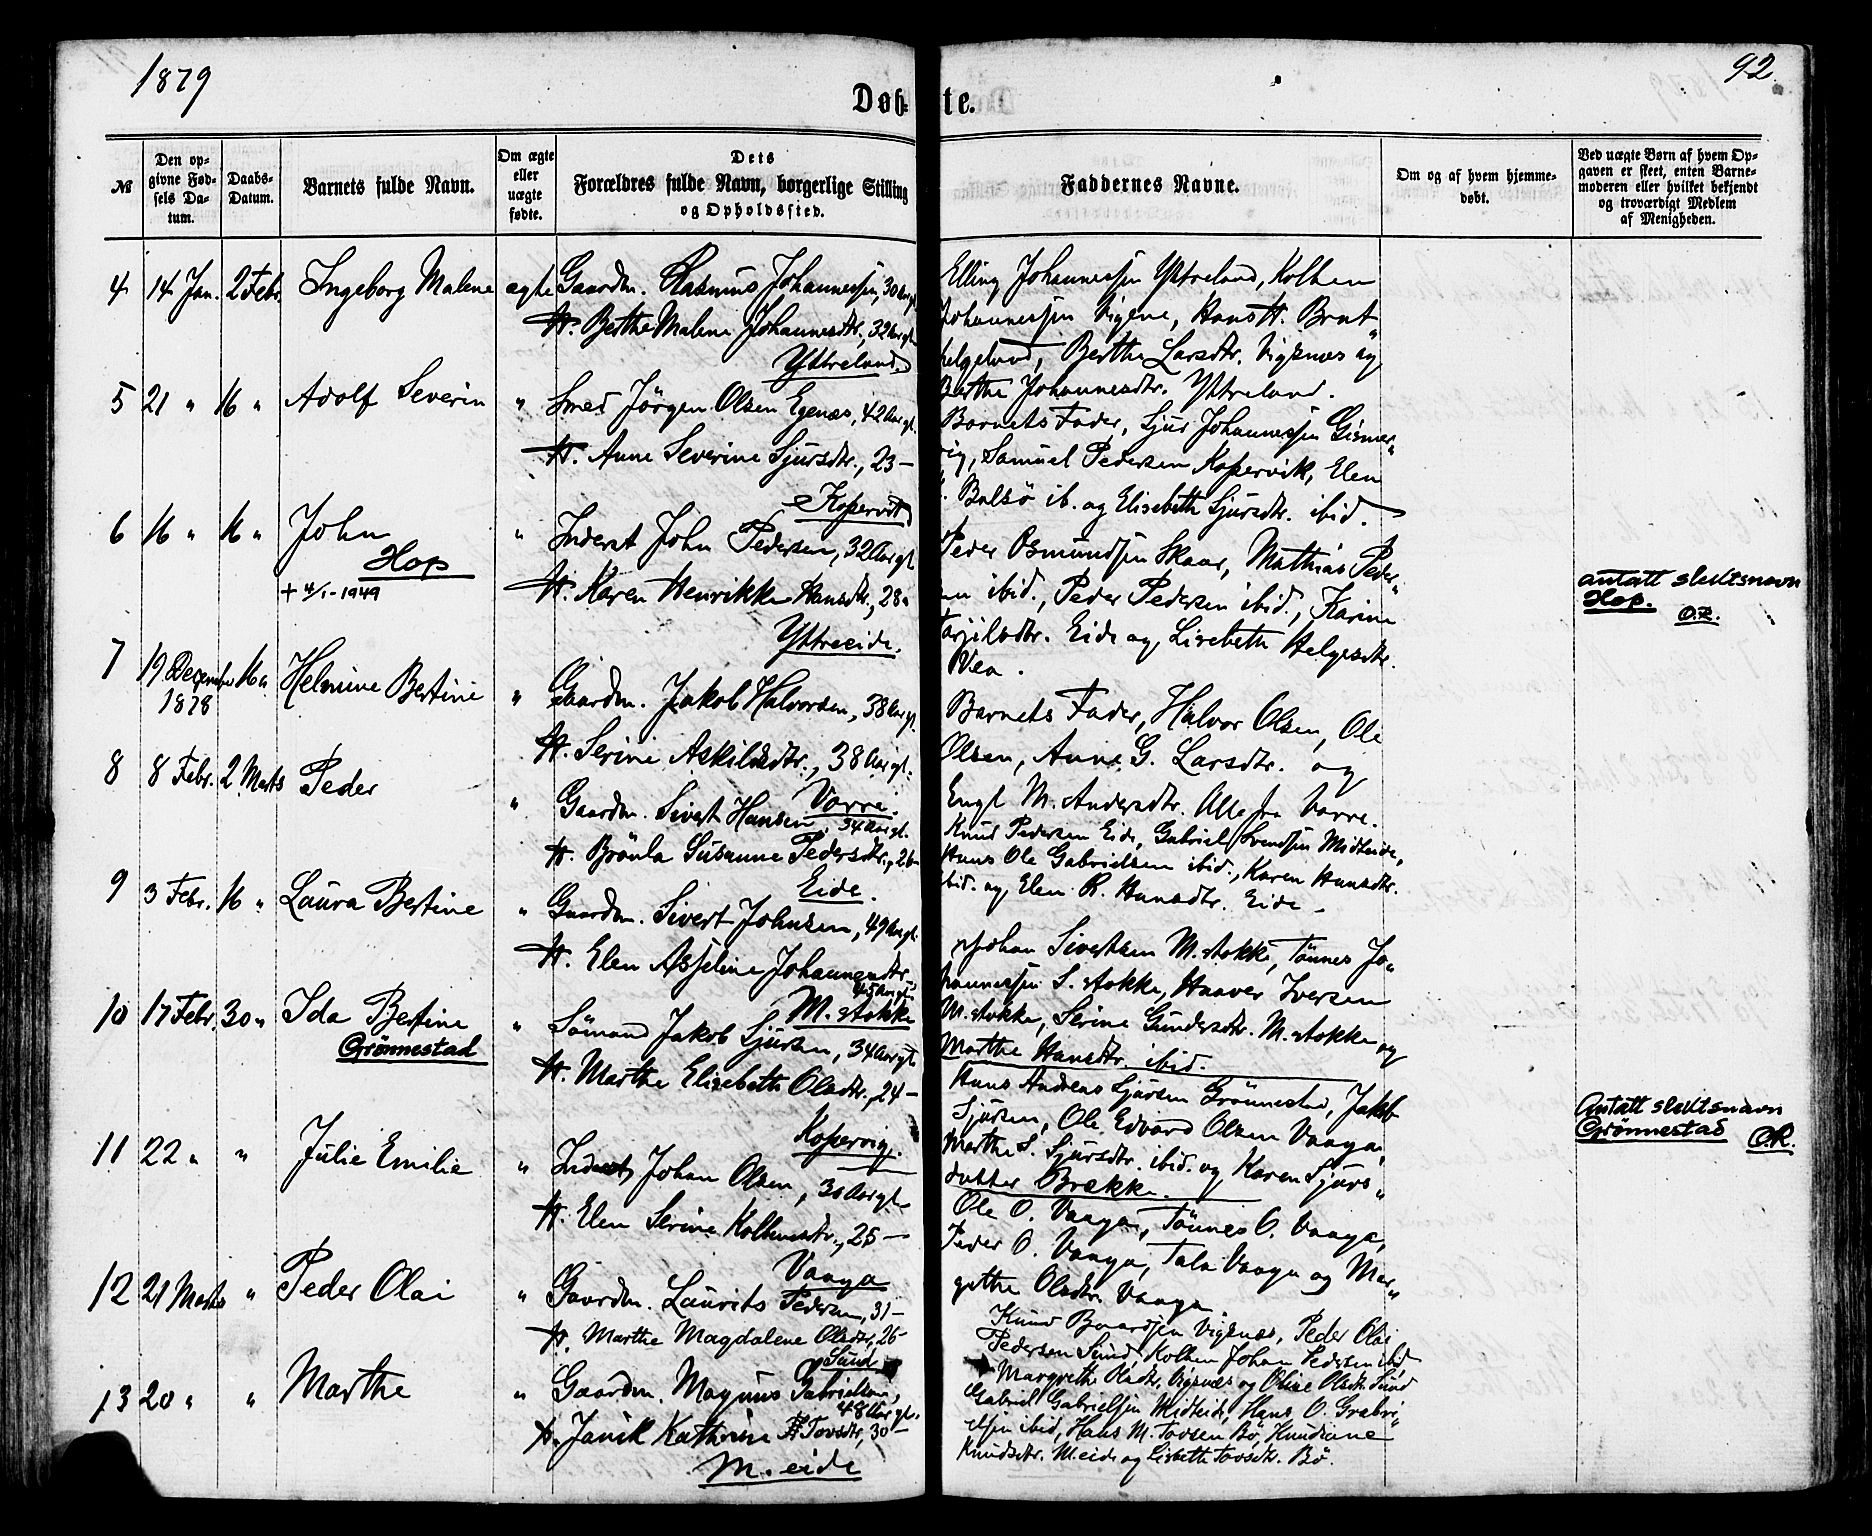 1879
92
Døb-te.
№
Den op-
givne Fød-
sels Da-
tum.
Daabs-
Datum.
Barnets fulde Navn.
Om ægte
eller
uægte
fødte.
Dets
Forældres fulde Navn, borgerlige Stilling
og Opholdssted.
Faddernes Navne.
Om og af hvem hjemme-
døbt.
Ved uægte Børn af hvem Op-
gaven er skeet, enten Barne-
moderen eller hvilket bekjendt
og troværdigt Medlem
af Menigheden.
4 14 Jan. 2 Febr. Ingeborg Malene ægte Gaardm. Rasmus Johannessen, 30 Aar gl.
H. Berthe Malene Johannesdtr., 32 Aar gl.
Yttreland.
Elling Johannessen Yttreland, Kolben
Johannessen Vigene, Hans H. Brat„
helgeland, Berthe Larsdtr. Vigsnæs og
Berthe Johannesdtr. Yttreland.
5 21 " 16 " Adolf Severin " Smed Jörgen Olsen Egenæs, 42 Aar gl.
H. Anne Severine Sjursdtr., 23 –
Kopervik
Barnets Fader, Sjur Johannessen Gismar„
vig, Samuel Pedersen Kopervik, Elen
Balsö ib. og Elisabeth Sjursdtr. ibid.
6 16 " 16 " John " Inderst John Pedersen, 32 Aar gl.
Hop
+ 4/1-1949
H. Karen Henrikke Hansdtr., 28 "
Yttreeide.
Peder Osmundsen Skaar, Mathias Peder„
en ibid., Peder Pedersen ibid., Karine
Tarjilsdtr. Eide og Lisebeth Helgesdtr.
Vea.
antatt slektsnavn
Hop. O.R.
7 19 December 16 " Helmine Bertine " Gaardm. Jakob Halvorsen, 38 Aar gl.
1878
H. Serine Askilsdtr., 38 Aar gl.
Vorre.
Barnets Fader, Halvor Olsen, Ole
Olsen, Anne G. Larsdtr. og
Engl M. Andersdtr. Alle fra Vorre.
8 8 Febr. 2 Marts Peder " Gaardm. Sivert Hansen, 34 Aar gl.
H. Brönla Susanne Pedersdtr., 26 –
Eide.
Knud Pedersen Eide, Gabriel Svendsen Midteide,
Hans Ole Gabrielsen ibid., Karen Hansdtr.
ibid. og Elen R. Hansdtr. Eide –
9 3 Febr. 16 " Laura Bertine " Gaardm. Sivert Johnsen, 49 Aar gl.
H. Elen Asseline Johannesdtr.
45 Aar gl.
M. stokke
Johan Sivertsen M. stokke, Tönnes Jo„
hannessen S. stokke, Haaver Iversen
M. stokke, Serine Gundersdtr. M. stokke og
Marthe Hansdtr. ibid.
10 17 Febr. 30 " Ida Bertine " Sömand Jakob Sjursen, 34 Aar gl.
Grönnestad
H. Marthe Elisebeth Olsdtr., 24 –
Kopervig.
Hans Andreas Sjursen Grönnestad, Jakob
Sjursen, Ole Edvard Olsen Vaaga,
Marthe S. Sjursdtr. ibid. og Karen Sjurs„
datter Brække.
Antatt slektsnavn
Grönnestad O.R.
11 22 " " Julie Emilie " Inderst Johan Olsen, 30 Aar gl.
H. Elen Serine Kolbensdtr., 25 –
Vaaga
Ole O. Vaaga, Tönnes O. Vaaga,
Peder O. Vaaga, Tala Vaaga og Mar„
grethe Olsdtr. Vaaga
12 21 Marts " Peder Olai " Gaardm. Laurits Pedersen, 31 –
H. Marthe Magdalene Olsdtr., 26 –
Sund
Knud Baardsen Vigsnæs, Peder Olai
Pedersen Sund, Kolben Johan Pedersen ibid
Margrethe Olsdtr. Vigsnæs og Oline Olsdtr. Sund
13 20 " " Marthe " Gaardm. Magnus Gabrielsen,
48 Aar gl.
H. Janik Kathrine Tovsdtr., 30 –
M. eide
Gabriel Gabrielsen Midteide, Hans O. Gabri„
elsen ibid, Hans M. Tovsen Bö, Knudiane
Knudsdtr. M.eide og Lisbeth Tovsdtr. Bö.